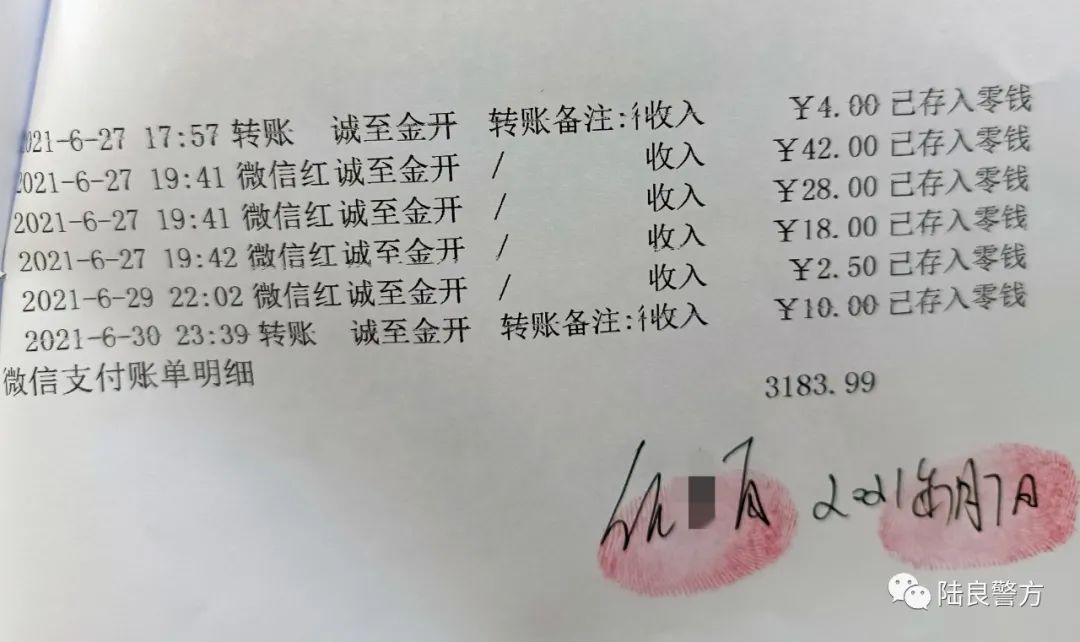 2021-6-27 17:57 转账 诚至金开 转账备注:彳收入 ￥4.00 已存入零钱
2021-6-27 19:41 微信红 诚至金开 / 收入 ￥42.00 已存入零钱
2021-6-27 19:41 微信红 诚至金开 / 收入 ￥28.00 已存入零钱
2021-6-27 19:42 微信红 诚至金开 / 收入 ￥18.00 已存入零钱
2021-6-29 22:02 微信红 诚至金开 / 收入 ￥2.50 已存入零钱
2021-6-30 23:39 转账 诚至金开 转账备注:彳收入 ￥10.00 已存入零钱
微信支付账单明细 3183.99
2021年7月7日
陆良警方